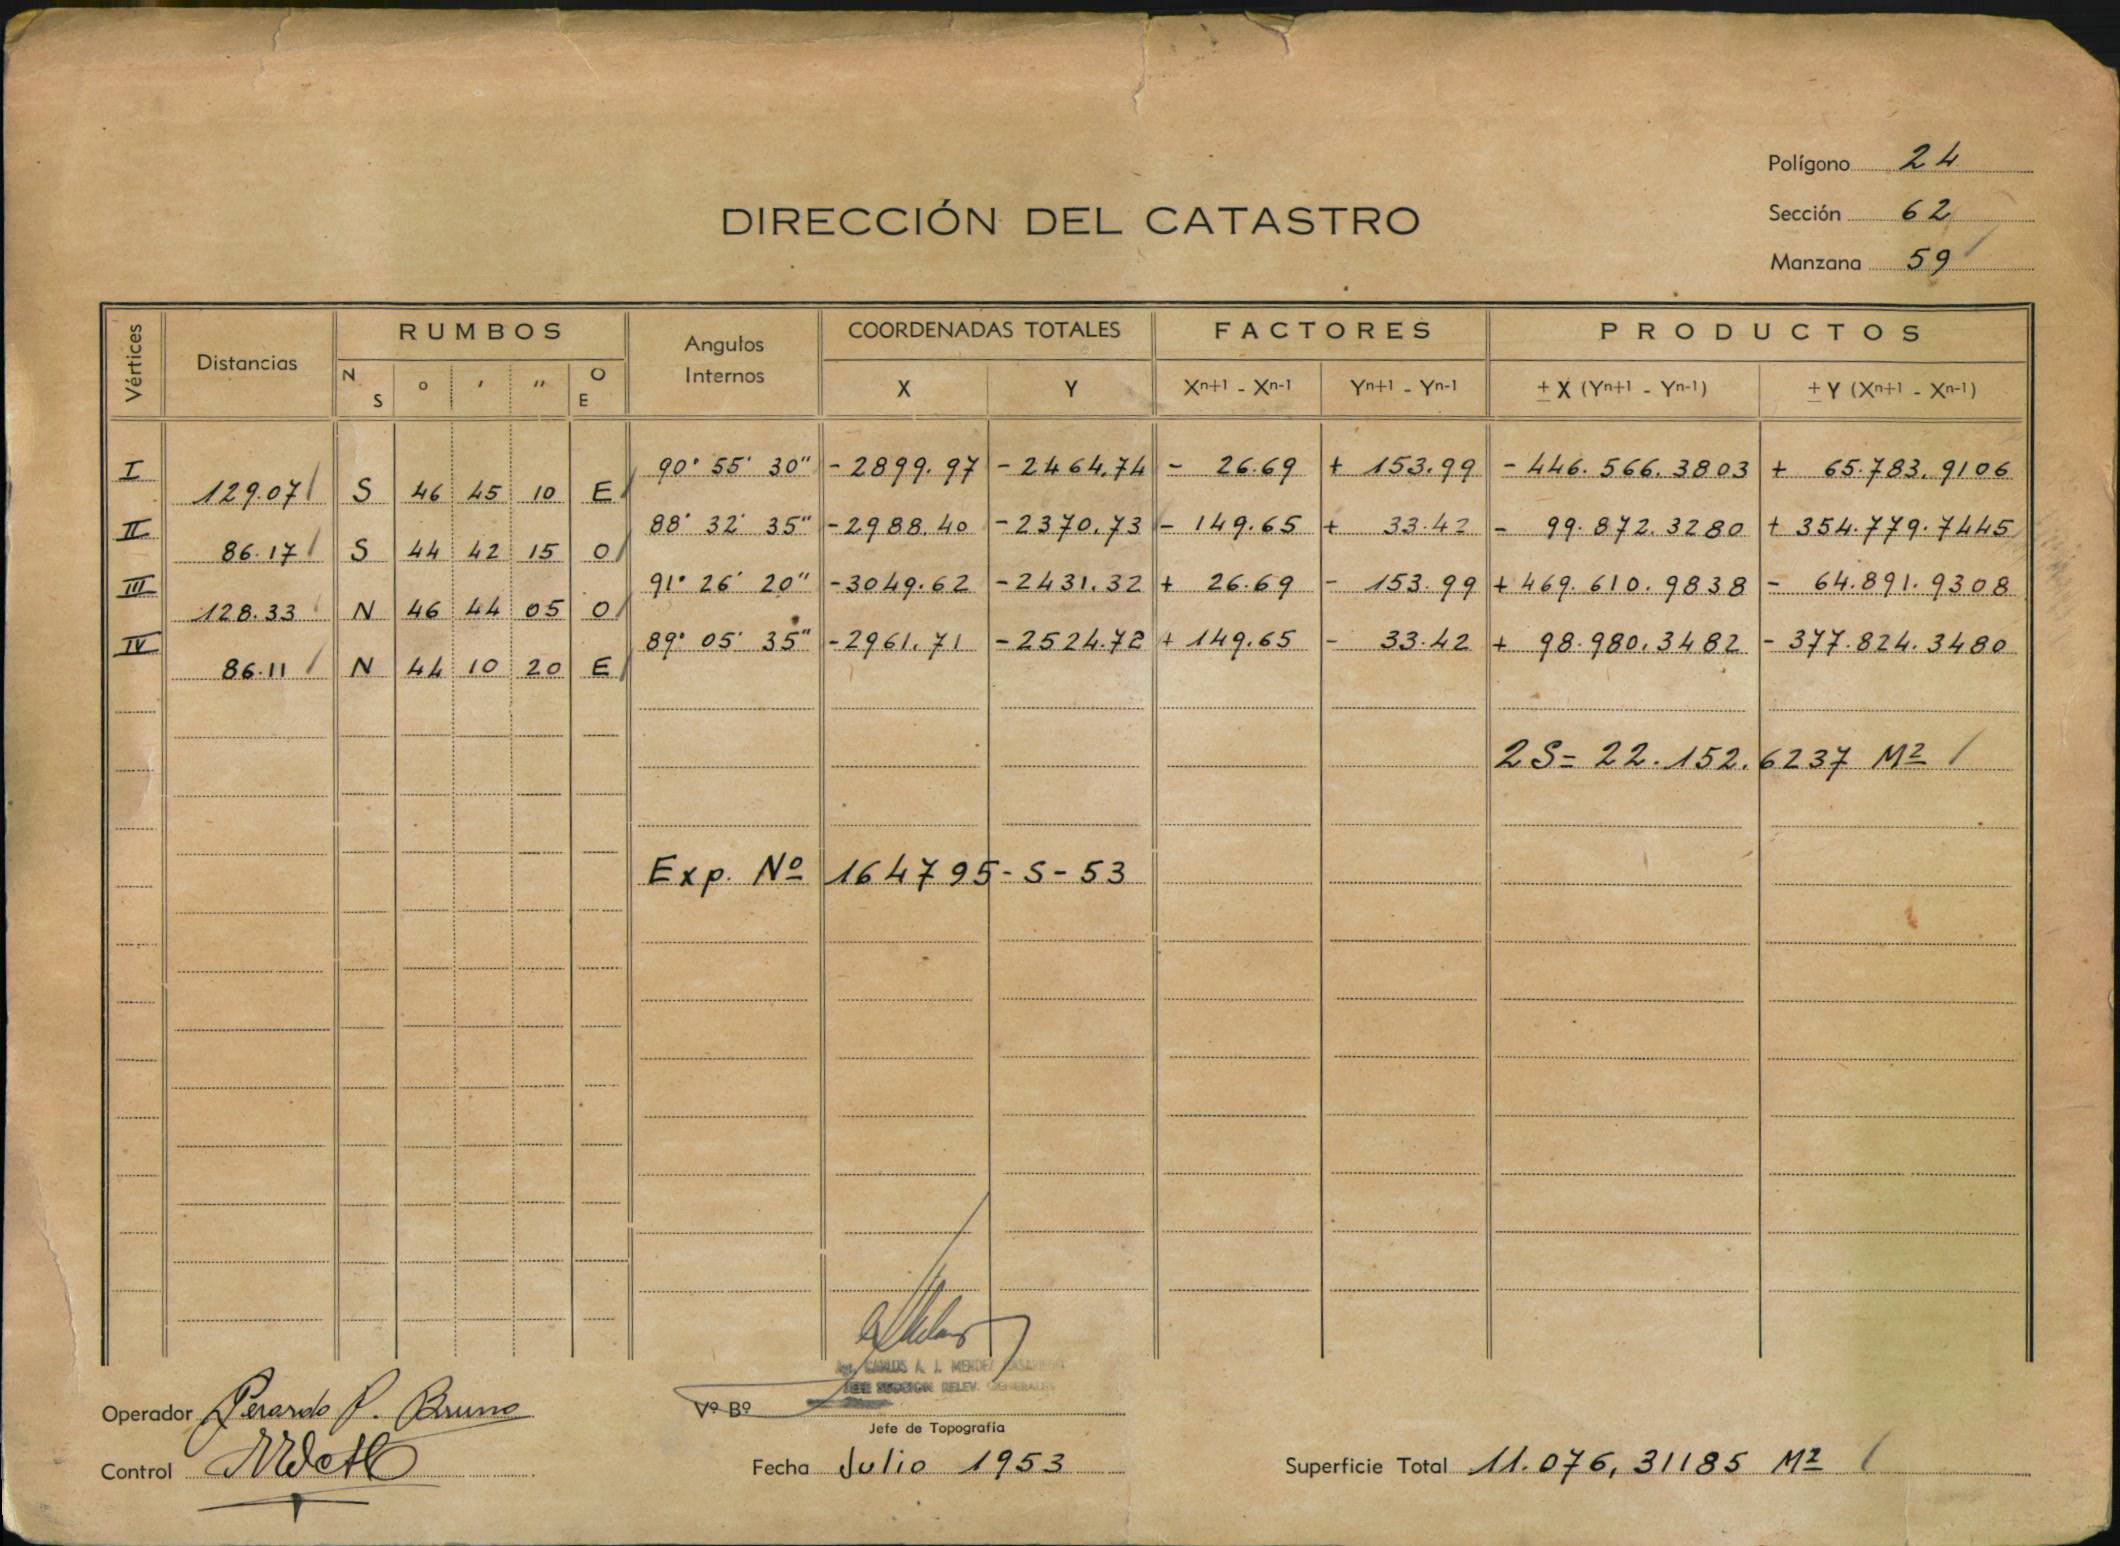 Polígono 24
DIRECCIÓN DEL CATASTRO
Sección 62
Manzana 59
Vértices
Distancias
RUMBOS
N S
o
'
"
O E
Angulos Internos
COORDENADAS TOTALES
X
Y
FACTORES
Xn+1 - Xn-1
Yn+1 - Yn-1
PRODUCTOS
± X (Yn+1 - Yn-1)
± Y (Xn+1 - Xn-1)
I 90° 55' 30" - 2899.97 - 2464.74 - 26.69 + 153.99 - 446.566.3803 + 65.783.9106
129.07 S 46 45 10 E
II 88° 32' 35" - 2988.40 - 2370.73 - 149.65 + 33.42 - 99.872.3280 + 354.779.7445
86.17 S 44 42 15 O
III 91° 26' 20" - 3049.62 - 2431.32 + 26.69 - 153.99 + 469.610.9838 - 64.891.9308
128.33 N 46 44 05 O
IV 89° 05' 35" - 2961.71 - 2524.72 + 149.65 - 33.42 + 98.980.3482 - 377.824.3480
86.11 N 44 10 20 E
2S= 22.152.6237 M2
Exp. Nº 164795-S-53
CARLOS A. J. MENDEZ
SECCION RELEV. GENERALES
Operador Gerardo P. Bruno
Vº Bº
Jefe de Topografía
Control
Fecha Julio 1953
Superficie Total 11.076,31185 M2